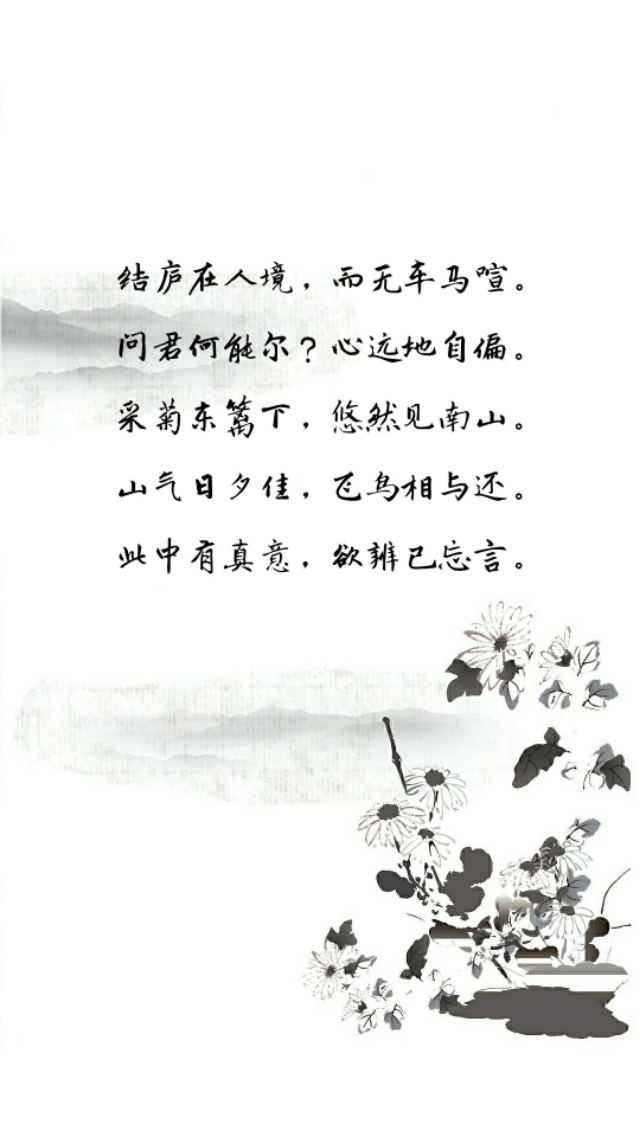 结庐在人境，而无车马喧。
问君何能尔？心远地自偏。
采菊东篱下，悠然见南山。
山气日夕佳，飞鸟相与还。
此中有真意，欲辨已忘言。